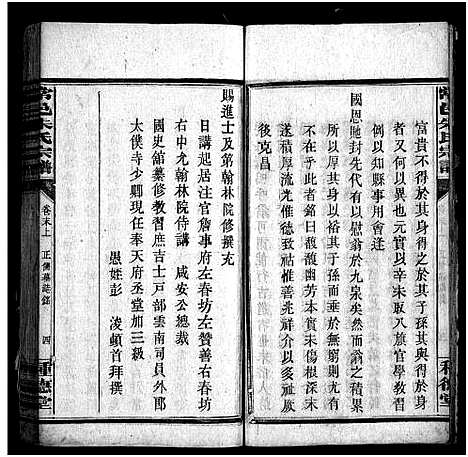 富貴不得於其身得之於其子孫其與得於其身
者又何以異也元實以辛未取入八旗官學教習
敘用以知縣事用會逢
國恩貤封先代有以慰翁於九泉矣然而翁之積累
所以厚於其身以裕其子孫而垂於無窮則尤有
不止於此者銘曰馥馥幽芳本實未傷根深末
遂積厚流光惟德致祜惟善兆祥介以多祉厥
後克昌
賜進士及第翰林院修撰充
日講起居注官詹事府左春坊左贊善右春坊
右中允翰林院侍講 咸安公總裁
國史館纂修教習庶吉士戶部雲南司員外郎
太僕寺少卿現任奉天府丞堂加三級
愚姪彭 浚頓首拜撰
常邑朱氏宗譜
卷末上
正儒墓誌銘
四
種德堂